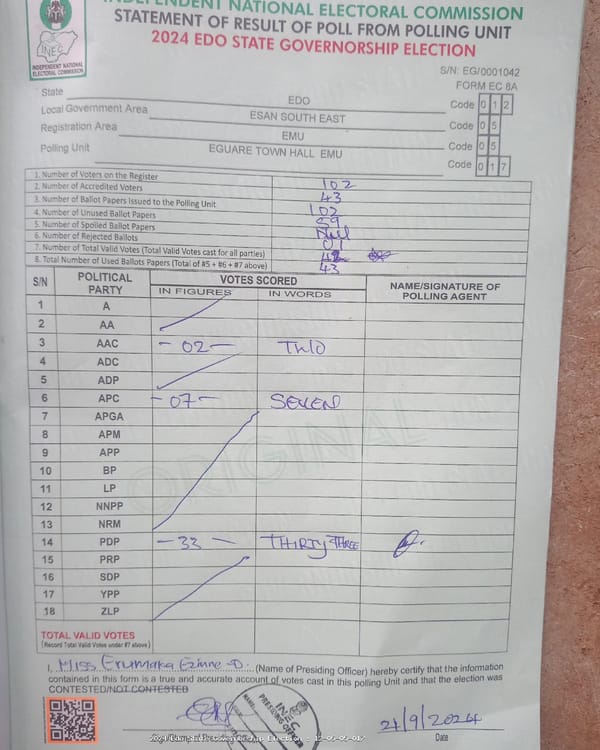 INDEPENDENT NATIONAL ELECTORAL COMMISSION
STATEMENT OF RESULT OF POLL FROM POLLING UNIT
2024 EDO STATE GOVERNORSHIP ELECTION
INEC
INDEPENDENT NATIONAL
ELECTORAL COMMISSION
S/N: EG/0001042
FORM EC 8A
State EDO Code 0 1 2
Local Government Area ESAN SOUTH EAST Code 0 5
Registration Area EMU Code 0 5
Polling Unit EGUARE TOWN HALL EMU Code 0 1 7
1. Number of Voters on the Register 102
2. Number of Accredited Voters 43
3. Number of Ballot Papers Issued to the Polling Unit 102
4. Number of Unused Ballot Papers 59
5. Number of Spoiled Ballot Papers Nill
6. Number of Rejected Ballots 01
7. Number of Total Valid Votes (Total Valid Votes cast for all parties) 42
8. Total Number of Used Ballots Papers (Total of #5 + #6 + #7 above) 43
S/N POLITICAL PARTY VOTES SCORED NAME/SIGNATURE OF POLLING AGENT
IN FIGURES IN WORDS
1 A
2 AA
3 AAC - 02 - TWO
4 ADC
5 ADP
6 APC - 07 - SEVEN
7 APGA
8 APM
9 APP
10 BP
11 LP
12 NNPP
13 NRM
14 PDP - 33 - THIRTY THREE
15 PRP
16 SDP
17 YPP
18 ZLP
ORIGINAL
TOTAL VALID VOTES
(Record Total Valid Votes under #7 above)
I, Miss Erumaka Ezinne .D. (Name of Presiding Officer) hereby certify that the information
contained in this form is a true and accurate account of votes cast in this polling Unit and that the election was
CONTESTED/NOT CONTESTED
INEC
PRESIDING OFFICER
21/9/2024
Date